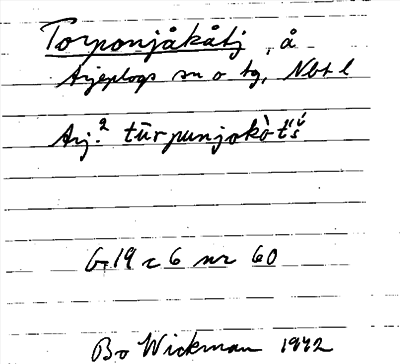 Torponjåkåtj, å
Arjeplogs sn o tg, Nbt l
Arj.² tūrpunjokò̀t́ś
G 19 c 6 nr 60
Bo Wickman 1942